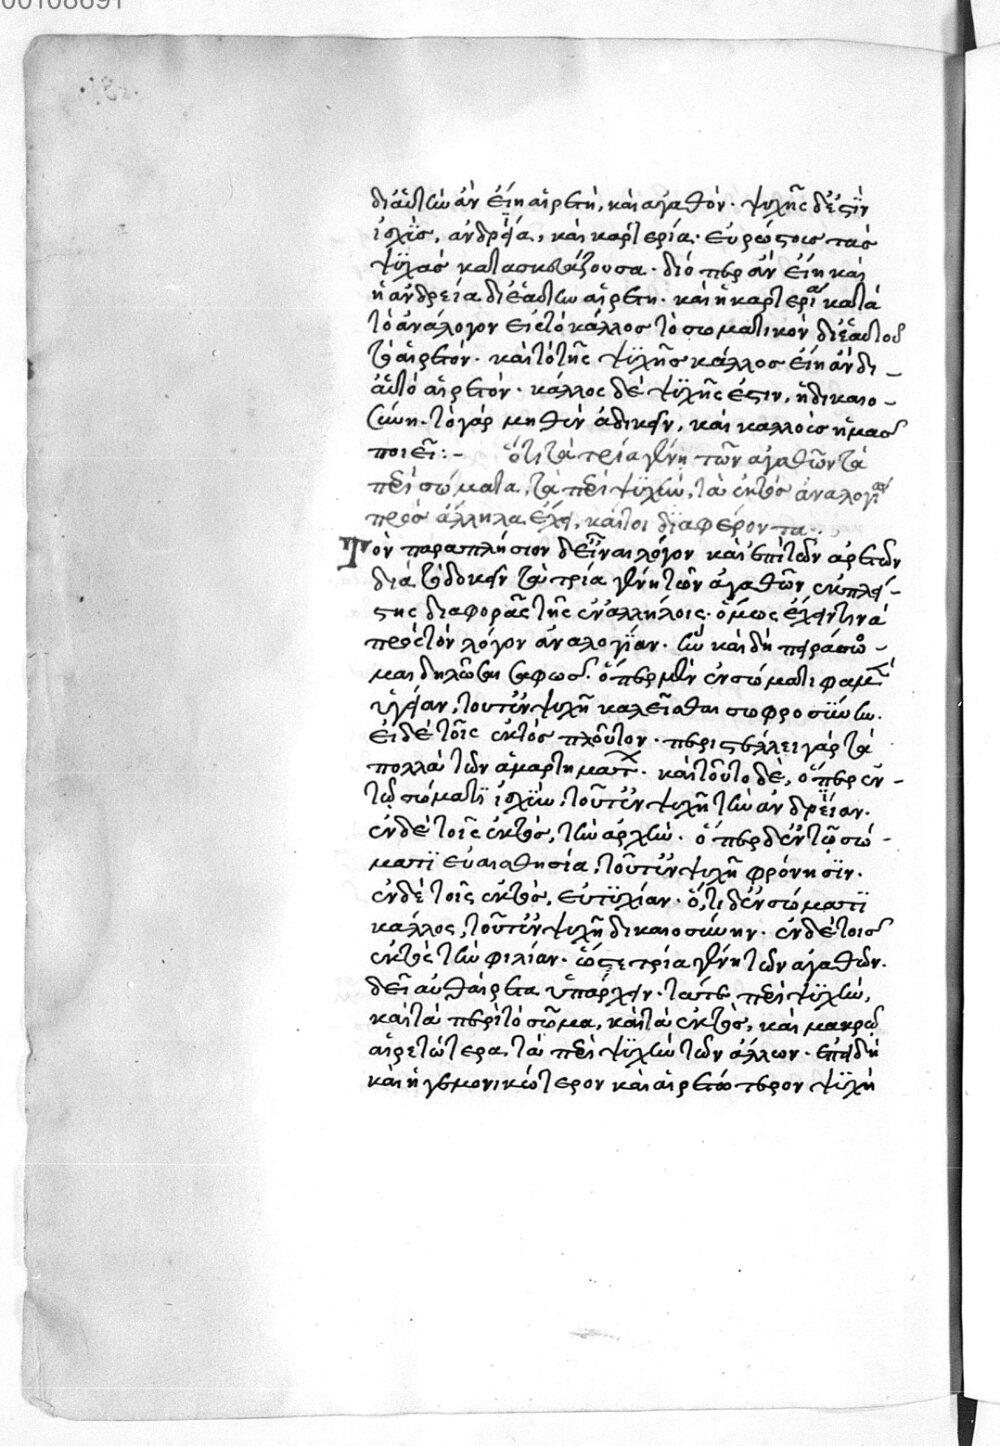 00108691
δι' αὑτὴν ἂν εἴη αἱρετὴ, καὶ ἀγαθόν. ψυχῆς δέ ἐστιν
ἰσχὺς, ἀνδρεία, καὶ καρτερία. εὐρώστους τὰς
ψυχὰς κατασκευάζουσα. διόπερ ἂν εἴη καὶ
ἡ ἀνδρεία δι' ἑαυτὴν αἱρετή. καὶ ἡ καρτερία κατὰ
τὸ ἀνάλογον εἰς τὸ κάλλος τὸ σωματικὸν δι' ἑαυτὸ
τὸ αἱρετόν. καὶ τὸ τῆς ψυχῆς κάλλος εἴη ἂν δι-
αὑτὸ αἱρετόν. κάλλος δὲ ψυχῆς ἐστιν, ἡ δικαιο-
σύνη. τὸ γὰρ μηθὲν ἀδικεῖν, καὶ καλλοὺς ἡμᾶς
ποιεῖ:-      ὅτι τὰ τρία γένη τῶν ἀγαθῶν τὰ
περὶ σώματα, τὰ περὶ ψυχὴν, τὰ ἐκτὸς ἀναλογίαν
πρὸς ἄλληλα ἔχει, καίτοι διαφέροντα.
Τὸν παραπλήσιον δὲ εἶναι λόγον καὶ ἐπὶ τῶν ἀρετῶν
διὰ τὸ δοκεῖν τὰ τρία γένη τῶν ἀγαθῶν ἐκ πλεί-
στης διαφορᾶς τῆς ἐν ἀλλήλοις. ὅμως ἔχειν τινὰ
πρὸς τὸν λόγον ἀναλογίαν. ἣν καὶ δὴ πειράσο-
μαι δηλῶσαι σαφῶς. ὅπερ μὲν ἐν σώματι φαμὲν
ὑγείαν, τοῦτ' ἐν ψυχῇ καλεῖσθαι σωφροσύνην.
εἰ δὲ τοῖς ἐκτὸς πλοῦτον. περιστέλλει γὰρ τὰ
πολλὰ τῶν ἁμαρτημάτων. καὶ τοῦτο δὲ, ὅπερ ἐν-
τῷ σώματι ἰσχὺν, τοῦτ' ἐν ψυχῇ τὴν ἀνδρείαν.
ἐν δὲ τοῖς ἐκτὸς, τὴν ἀρχὴν. ὅπερ δ' ἐν τῷ σώ-
ματι εὐαισθησία, τοῦτ' ἐν ψυχῇ φρόνησιν.
ἐν δὲ τοῖς ἐκτὸς, εὐτυχίαν. ὅ,τι δ' ἐν σώματι
κάλλος, τοῦτ' ἐν ψυχῇ δικαιοσύνην. ἐν δὲ τοῖς
ἐκτὸς τὴν φιλίαν. ὥστε τρία γένη τῶν ἀγαθῶν.
δεῖ αὐθαίρετα ὑπάρχειν. τά τε περὶ ψυχὴν,
καὶ τὰ περὶ τὸ σῶμα, καὶ τὰ ἐκτὸς, καὶ μακρῷ
αἱρετώτερα τὰ περὶ ψυχὴν τῶν ἄλλων. ἐπειδὴ
καὶ ἡγεμονικώτερον καὶ αἱρετώτερον ψυχὴ